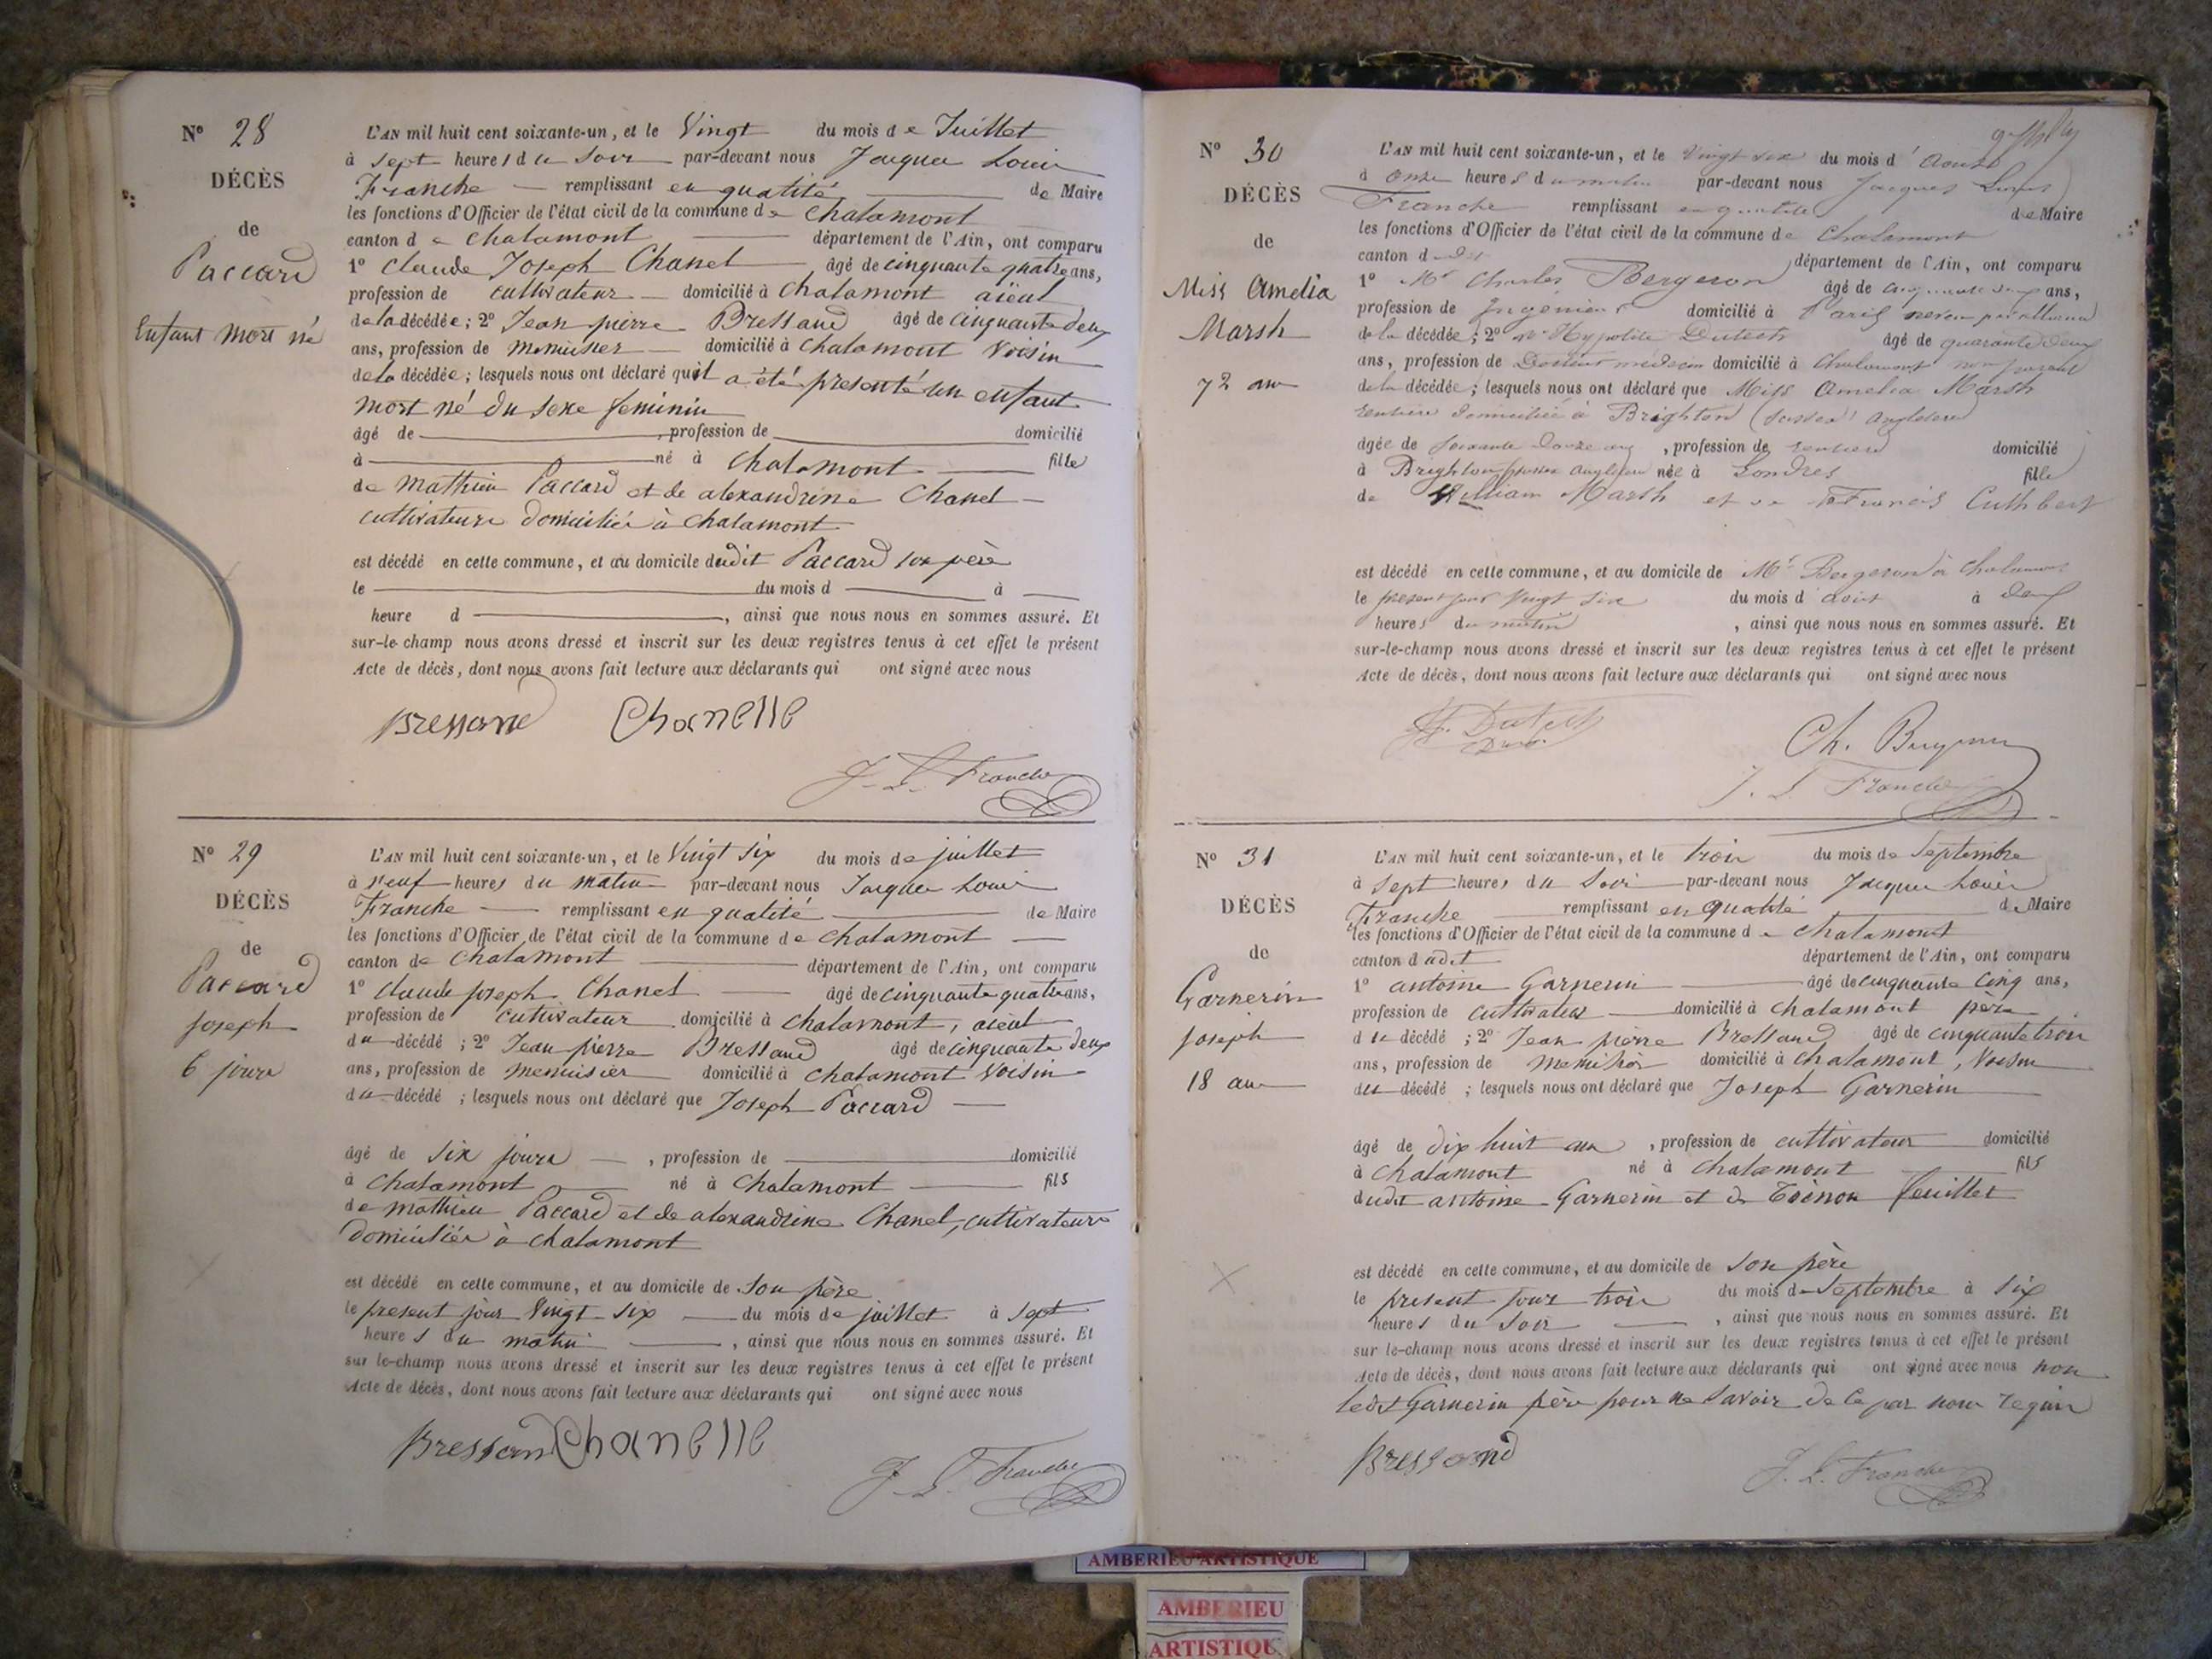 N° 28
DÉCÈS
de
Paccard
Enfant mort né
L'AN mil huit cent soixante-un, et le Vingt du mois de Juillet
à sept heures du soir par-devant nous Jacques Louis
Franche remplissant en qualité de Maire
les fonctions d'Officier de l'état civil de la commune de Chalamont
canton de Chalamont département de l'Ain, ont comparu
1° Claude Joseph Chanel âgé de cinquante quatre ans,
profession de cultivateur domicilié à Chalamont aïeul
de la décédée; 2° Jean pierre Bressand âgé de cinquante deux
ans, profession de menuisier domicilié à Chalamont Voisin
de la décédée; lesquels nous ont déclaré qu'il a été presenté un enfant
mort né du sexe feminin
âgé de , profession de domicilié
à né à Chalamont fille
de Mathieu Paccard et de alexandrine Chanel
cultivateurs domiciliés à Chalamont
est décédé en cette commune, et au domicile dudit Paccard son père
le du mois d à
heure d , ainsi que nous nous en sommes assuré. Et
sur-le-champ nous avons dressé et inscrit sur les deux registres tenus à cet effet le présent
Acte de décès, dont nous avons fait lecture aux déclarants qui ont signé avec nous
Bressand Chanelle
J. L. Franche
N° 29
DÉCÈS
de
Paccard
Joseph
6 jours
L'AN mil huit cent soixante-un, et le Vingt six du mois de juillet
à neuf heures du matin par-devant nous Jacques Louis
Franche remplissant en qualité de Maire
les fonctions d'Officier de l'état civil de la commune de Chalamont
canton de Chalamont département de l'Ain, ont comparu
1° Claude joseph Chanel âgé de cinquante quatre ans,
profession de cultivateur domicilié à Chalamont, aïeul
du décédé; 2° Jean pierre Bressand âgé de cinquante deux
ans, profession de menuisier domicilié à Chalamont Voisin
du décédé; lesquels nous ont déclaré que Joseph Paccard
âgé de six jours , profession de domicilié
à Chalamont né à Chalamont fils
de mathieu Paccard et de alexandrine Chanel, cultivateurs
domiciliés à Chalamont
est décédé en cette commune, et au domicile de son père
le present jour Vingt-six du mois de juillet à sept
heures du matin , ainsi que nous nous en sommes assuré. Et
sur le-champ nous avons dressé et inscrit sur les deux registres tenus à cet effet le présent
Acte de décès, dont nous avons fait lecture aux déclarants qui ont signé avec nous
Bressand Chanelle
J. L. Franche
N° 30
DÉCÈS
de
Miss Amelia
Marsh
72 ans
L'AN mil huit cent soixante-un, et le Vingt six du mois d'Aoust
à onze heures du matin par-devant nous Jacques Louis
Franche remplissant en qualité de Maire
les fonctions d'Officier de l'état civil de la commune de Chalamont
canton dudit département de l'Ain, ont comparu
1° Mr Charles Bergeron âgé de ans,
profession de Ingénieur domicilié à Paris neveu par alliance
de la décédée; 2° Mr Hypolite Dutech âgé de quarante deux
ans, profession de Docteur médecin domicilié à Chalamont non parent
de la décédée; lesquels nous ont déclaré que Miss Amelia Marsh
rentière domiciliée à Brighton (Sussex) Angleterre
âgée de soixante douze ans , profession de rentière domicilié
à Brighton Sussex Angleterre née à Londres fille
de William Marsh et de Francis Cuthbert
est décédé en cette commune, et au domicile de Mr Bergeron à Chalamont
le present jour Vingt six du mois d'aout à deux
heures du matin , ainsi que nous nous en sommes assuré. Et
sur-le-champ nous avons dressé et inscrit sur les deux registres tenus à cet effet le présent
Acte de décès, dont nous avons fait lecture aux déclarants qui ont signé avec nous
H. Dutech
Ch. Bergeron
J. L Franche
N° 31
DÉCÈS
de
Garnerin
joseph
18 ans
L'AN mil huit cent soixante-un, et le trois du mois de Septembre
à sept heures du soir par-devant nous Jacques Louis
Franche remplissant en qualité de Maire
les fonctions d'Officier de l'état civil de la commune de Chalamont
canton dudit département de l'Ain, ont comparu
1° antoine Garnerin âgé de cinquante cinq ans,
profession de cultivateur domicilié à Chalamont père
du décédé; 2° Jean pierre Bressand âgé de cinquante trois
ans, profession de menuisier domicilié à Chalamont, Voisin
du décédé ; lesquels nous ont déclaré que Joseph Garnerin
âgé de dix huit ans , profession de cultivateur domicilié
à Chalamont né à Chalamont fils
dudit antoine Garnerin et de Toinon feuillet
est décédé en cette commune, et au domicile de son père
le present jour trois du mois de Septembre à six
heures du soir , ainsi que nous nous en sommes assuré. Et
sur le-champ nous avons dressé et inscrit sur les deux registres tenus à cet effet le présent
Acte de décès, dont nous avons fait lecture aux déclarants qui ont signé avec nous non
ledit Garnerin père pour ne savoir de ce par nous requis
Bressand
J. L. Franche
AMBERIEU ARTISTIQUE
AMBERIEU
ARTISTIQU